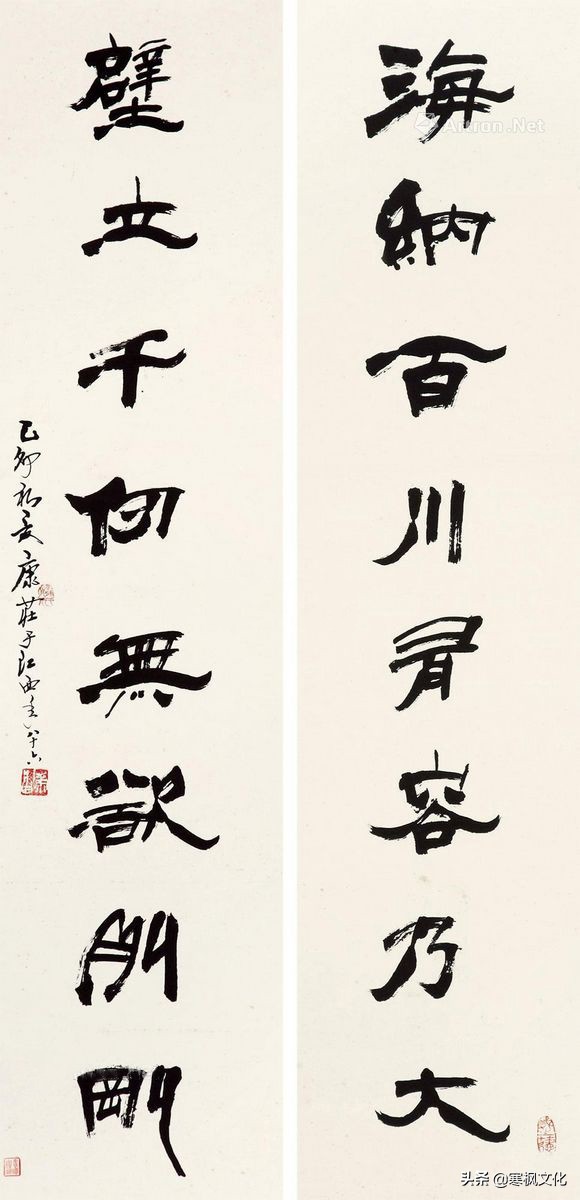 海納百川有容乃大
壁立千仞無欲則剛
己卯初夏康莊于江西年八十六
Artron.Net
头条 @寒枫文化